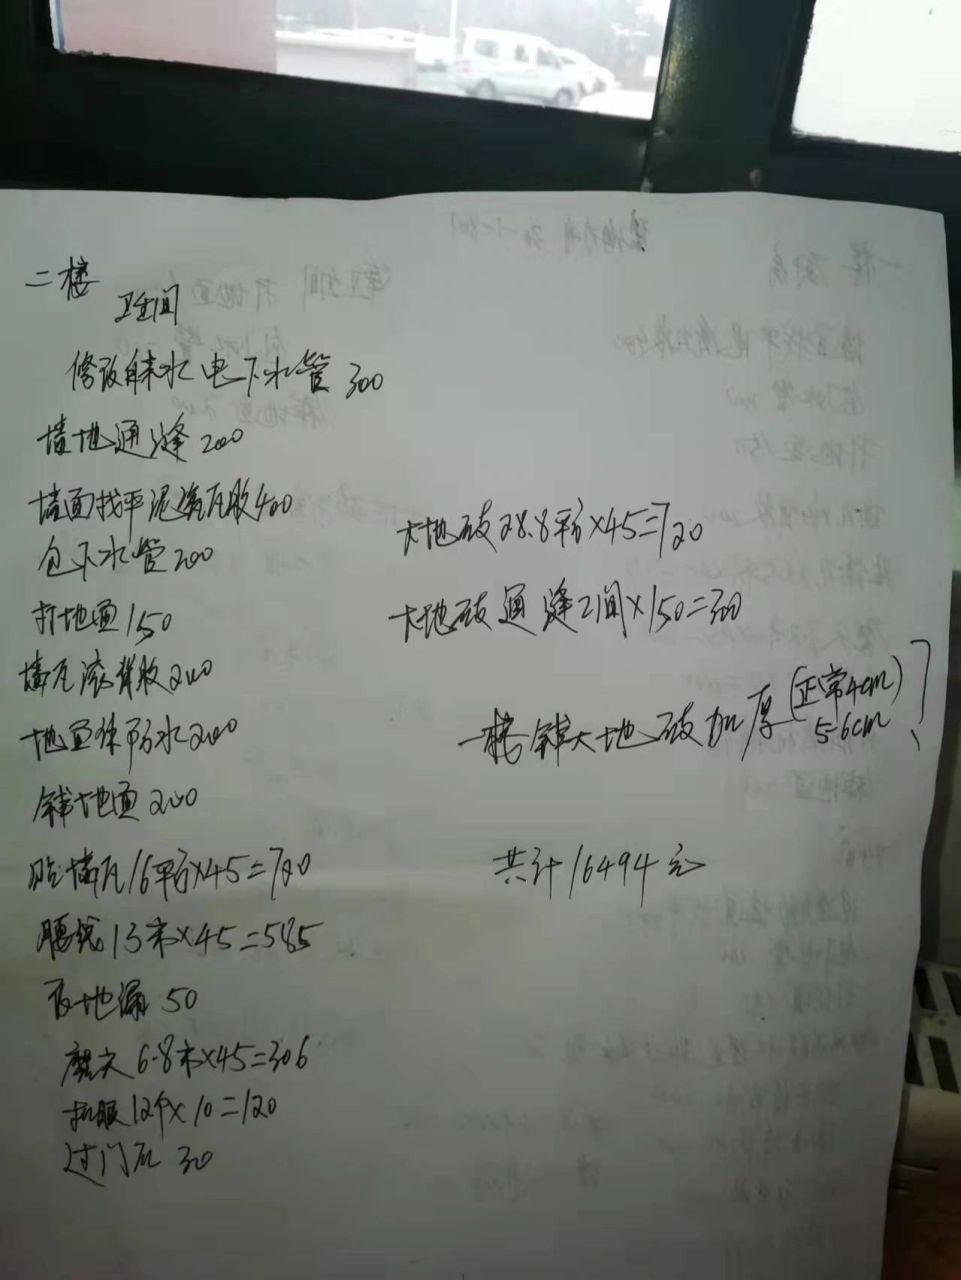 二楼
卫生间
修改自来水电下水管300
墙地通缝200
墙面找平泥
400
包下水管200
打地面150
墙瓦滚背胶200
地面
防水200
铺地面200
贴墙瓦16平方×45=720
腰线13米×45=585
地漏50
磨尖6.8米×45=306
扣眼12个×10=120
过门石30
大地砖28.8平方×45=720
大地砖通缝2间×150=300
一楼铺大地砖加厚(正常4cm)
5-6cm
共计16494元